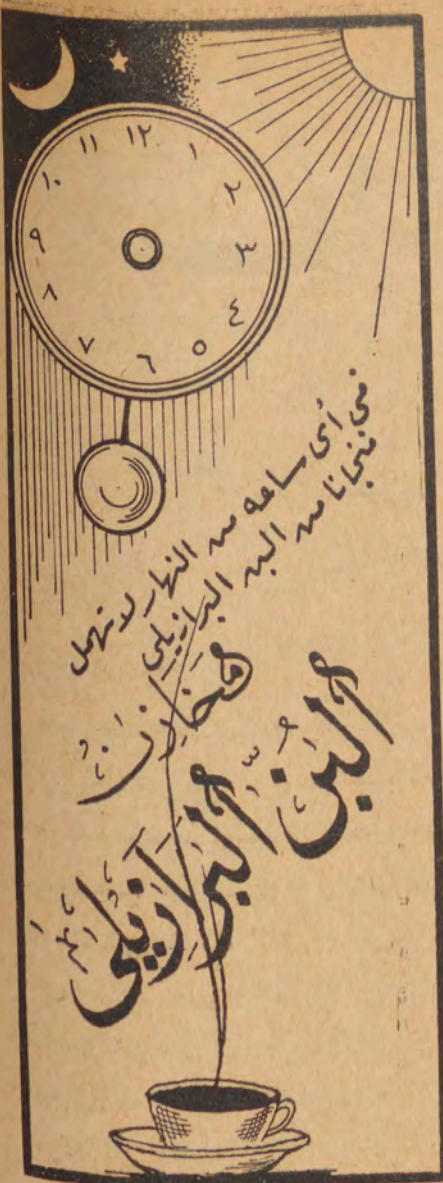 ١٢
١
٢
٣
٤
٥
٦
٧
٨
٩
١٠
١١
فى أى ساعة من النهار لا تهمل
فنجانا من البن البرازيلى
مخازن
البن
البرازيلى